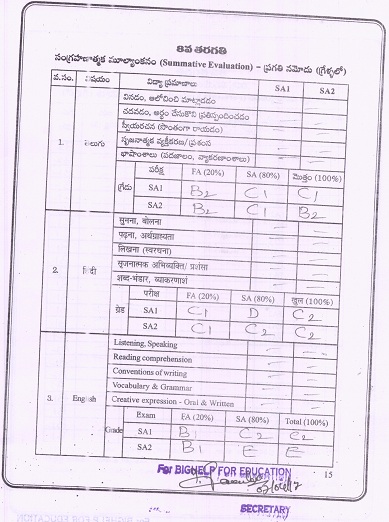 8వ తరగతి
సంగ్రహణాత్మక మూల్యాంకనం (Summative Evaluation) – ప్రగతి నమోదు (గ్రేడ్లలో)
వ.సం. విషయం విద్యా ప్రమాణాలు SA1 SA2
వినడం, ఆలోచించి మాట్లాడడం
చదవడం, అర్థం చేసుకొని ప్రతిస్పందించడం
స్వీయరచన (సొంతంగా రాయడం)
సృజనాత్మక వ్యక్తీకరణ/ప్రశంస
భాషాంశాలు (పదజాలం, వ్యాకరణాంశాలు)
1. తెలుగు
పరీక్ష FA (20%) SA (80%) మొత్తం (100%)
గ్రేడు SA1 B2 C1 C1
SA2 B2 C1 B2
सुनना, बोलना
पढ़ना, अर्थग्राह्यता
लिखना (स्वरचना)
सृजनात्मक अभिव्यक्ति/ प्रशंसा
शब्द-भंडार, व्याकरणांश
2. हिंदी
परीक्षा FA (20%) SA (80%) कुल (100%)
ग्रेड SA1 C1 D C2
SA2 C1 C2 C2
Listening, Speaking
Reading comprehension
Conventions of writing
Vocabulary & Grammar
Creative expression - Oral & Written
3. English
Exam FA (20%) SA (80%) Total (100%)
Grade SA1 B1 C2 C2
SA2 B1 E E
For BIGHELP FOR EDUCATION
15
SECRETARY